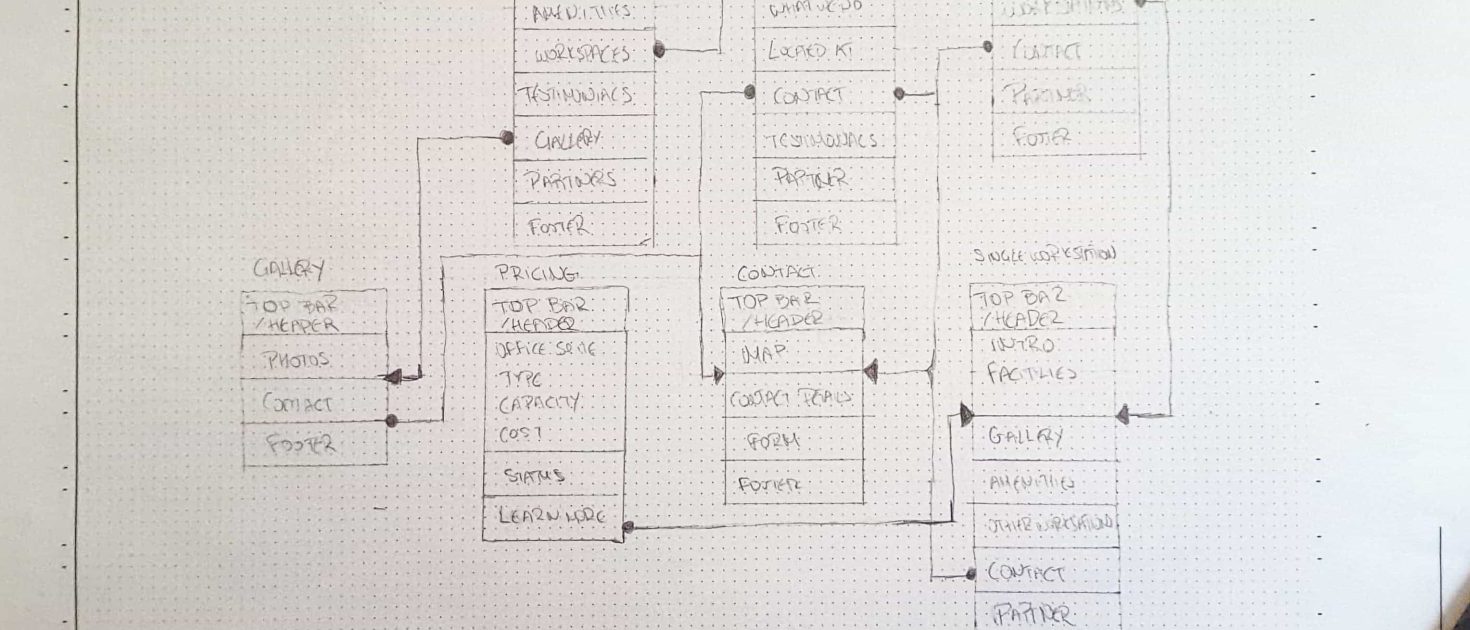 AMENITIES
WORKSPACES
TESTIMONIALS
GALLERY
PARTNERS
FOOTER
WHAT WE DO
LOCATED AT
CONTACT
TESTIMONIALS
PARTNER
FOOTER
CONTACT
PARTNER
FOOTER
GALLERY
TOP BAR
/HEADER
PHOTOS
CONTACT
FOOTER
PRICING
TOP BAR
/HEADER
TYPE
CAPACITY
COST
STATUS
LEARN MORE
CONTACT
TOP BAR
/HEADER
MAP
CONTACT DETAILS
FORM
FOOTER
SINGLE WORKSTATION
TOP BAR
/HEADER
INTRO
FACITLIES
GALLERY
AMENITIES
OTHER WORKSTATIONS
CONTACT
PARTNER